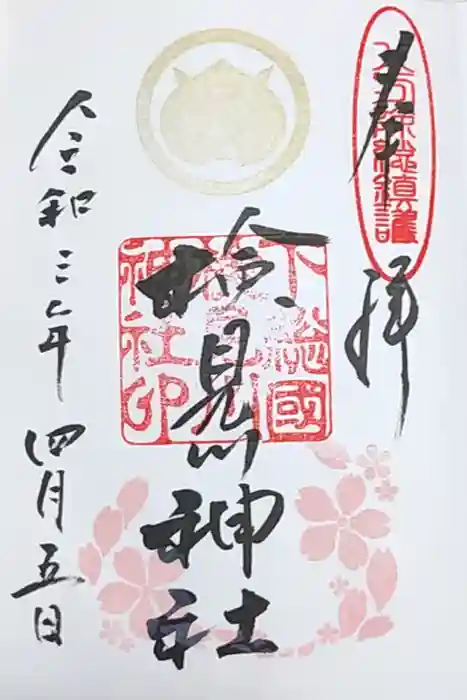 奉拝
検見川神社
下総國検見川神社印
令和三年四月五日